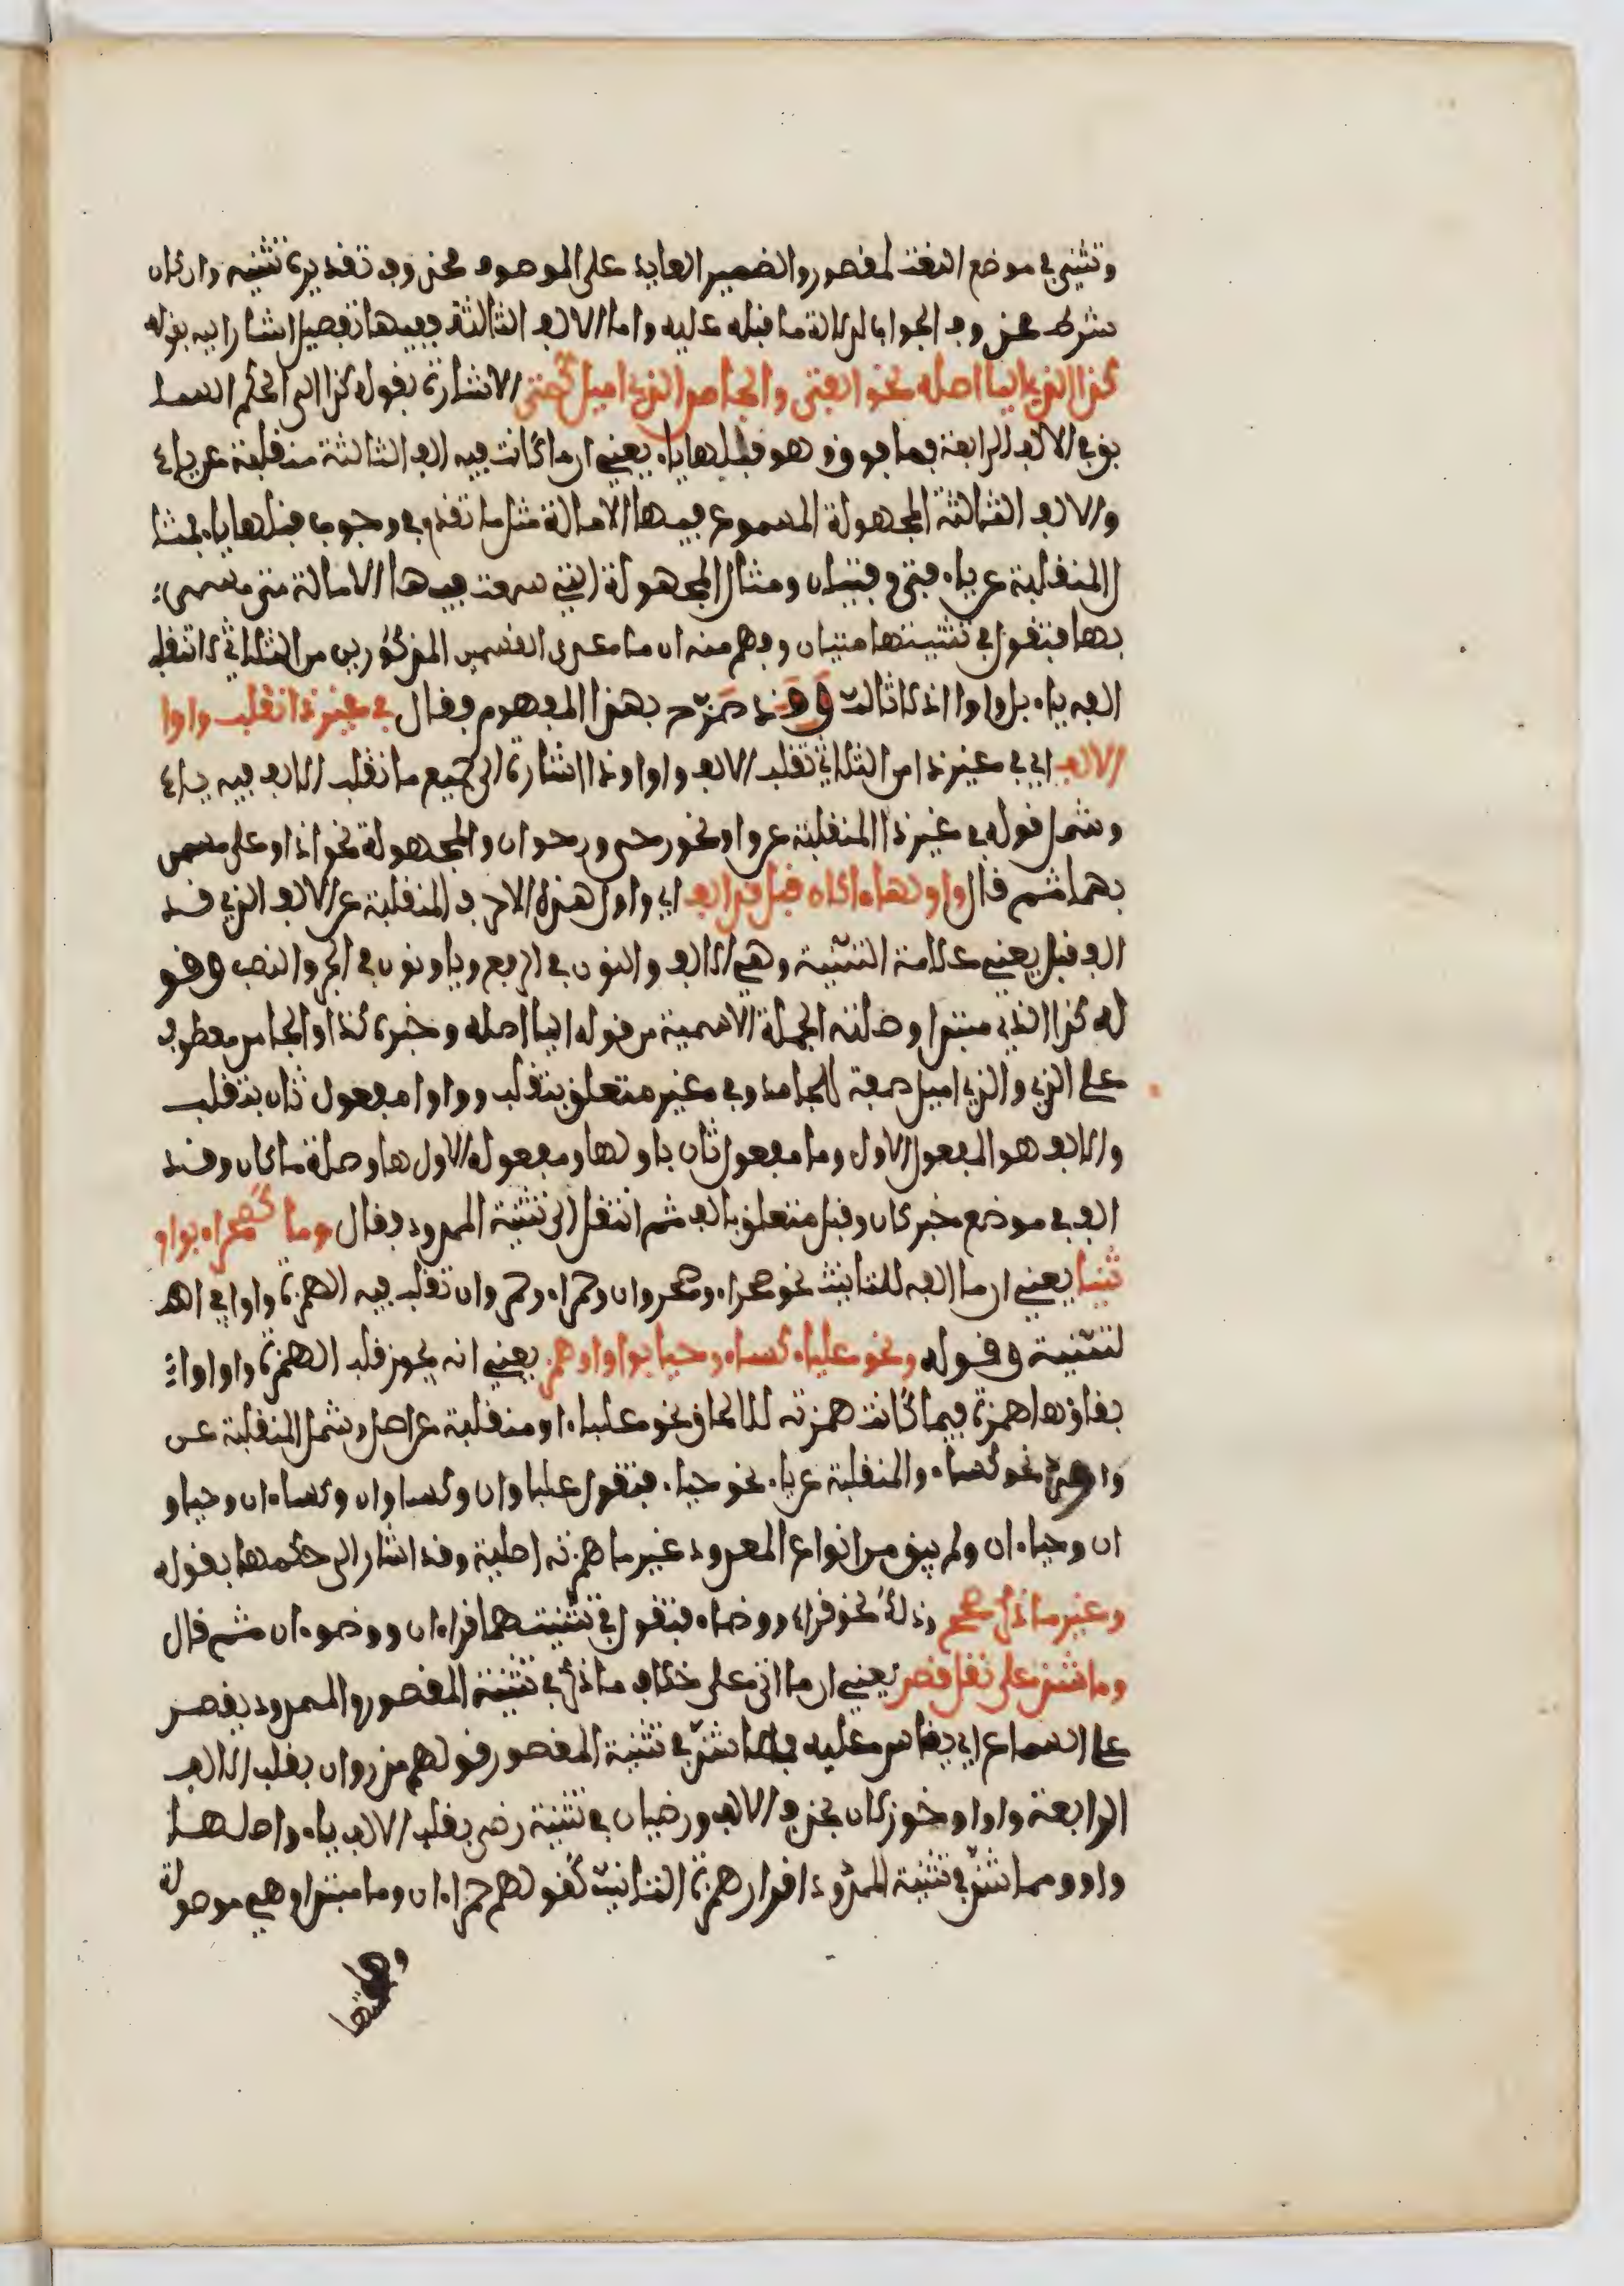 وتثنى في موضع النعت لمقصور والضمير العايد على الموصوف محذوف تقديره تثنيه وان كان
شرط محذوف الجواب لدلالة ما قبله عليه واما الالف الثالثة ففيها تفصيل اشار اليه بقوله
كذا الذي اليا اصله نحو الفتى والجامد الذي اميل كمتى الاشارة بقوله كذا الى الحكم السا
بق في الالف الرابعة فما فوق وهو قلبها ياء يعني ان ما كانت فيه الف الثالثة منقلبة عن ياء
والالف الثالثة المجهولة المسموع فيها الامالة مثل ما تقدم في وجوب قبلها ياء فمثا
ل المنقلبة عن ياء فتى وفتيان ومثال المجهولة التي سمعت فيها الامالة متى مسمى
بها فتقول في تثنيتها متيان وفهم منه ان ما عدى القسمين المذكورين من الثلاثي لا تنقلب
الفه ياء بل واوا اذ لا ثالث وقد صرح بهذا المفهوم فقال في غير ذا تقلب واوا
الالف اي في غير ذا من الثلاثي تقلب الالف واوا وذا اشارة الى جميع ما تقلب الالف فيه ياء
وشمل قوله في غير ذا المنقلبة عن واو نحو رحى ورحوان والمجهولة نحو اذا وعلى مسمى
بهما ثم قال واولها ما كان قبل قد الف اي واول هذه الاحرف المنقلبة عن الالف الذي قد
الف قبل يعني علامة التثنية وهي الالف والنون في الرفع ويا ونون في الجر والنصب وقو
له كذا الذي مبتدا وصلته الجملة الاسمية من قوله اليا اصله وخبره كذا والجامد معطوف
على الذي والذي اميل صفة للجامد وفي غير متعلق بتقلب وواوا مفعول ثان بتقلب
والالف هو المفعول الاول وما مفعول ثان باولها ومفعوله الاول ها وصلة ما كان وقد
الف في موضع خبر كان وقبل متعلق بالف ثم انتقل الى تثنية الممدود فقال وما كصحراء بواو
ثنيا يعني ان ما الفه للتانيث نحو صحراء وصحروان وحمراء وحمروان تقلب فيه الهمزة واوا في الف
لتثنية وقوله ونحو علباء كساء وحيا بواو او همز يعني انه يجوز قلب الهمزة واوا و
بقاؤها همزة فيما كانت همزته للالحاق نحو علباء او منقلبة عن اصل وشمل المنقلبة عن
واو نحو كساء والمنقلبة عن ياء نحو حياء فتقول علباوان وكساوان وكساءان وحياو
ان وحياءان ولم يبق من انواع الممدود غير ما همزته اصلية وقد اشار الى حكمها بقوله
وغير ما ذكر صحح وذلك نحو قراء ووضاء فتقول في تثنيتهما قراءان ووضوءان ثم قال
وما شذ على نقل قصر يعني ان ما اتى على خلاف ما ذكر في تثنية المقصور والممدود يقصر
على السماع اي يقاس عليه فمما شذ في تثنية المقصور قولهم مذروان بقلب الالف
الرابعة واوا وخوزلان بحذف الالف ورضيان في تثنية رضى بقلب الالف ياء واصلها
واو ومما شذ في تثنية الممدود اقرار همزة التانيث كقولهم حمراءان وما مبتدا وهي موصولة